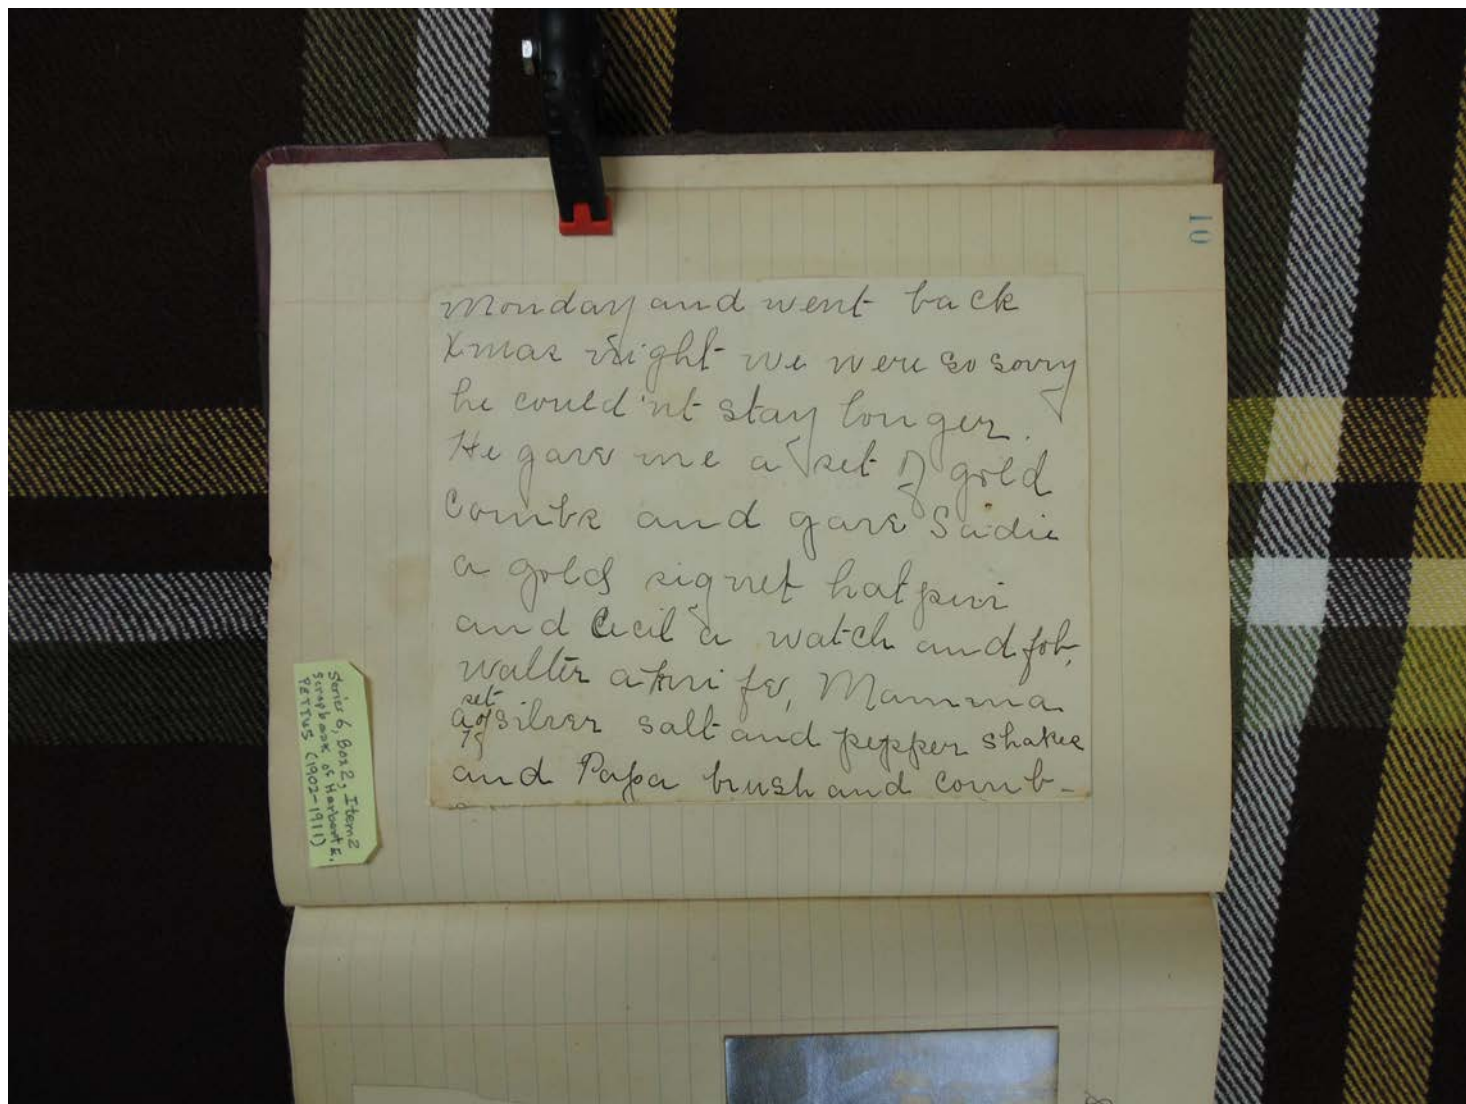 10
Monday and went back
Xmas night we were so sorry
he could'nt stay longer.
He gave me a set of gold
Combs and gave Sadie
a gold signet hat pin
and Cecil a watch and fob,
walter a knife, Mamma
set
a of silver salt and pepper shakes
and Papa brush and comb-
Series 6, Box 2, Item 2
scrapbook of Harbert E.
PETTUS (1902-1911)